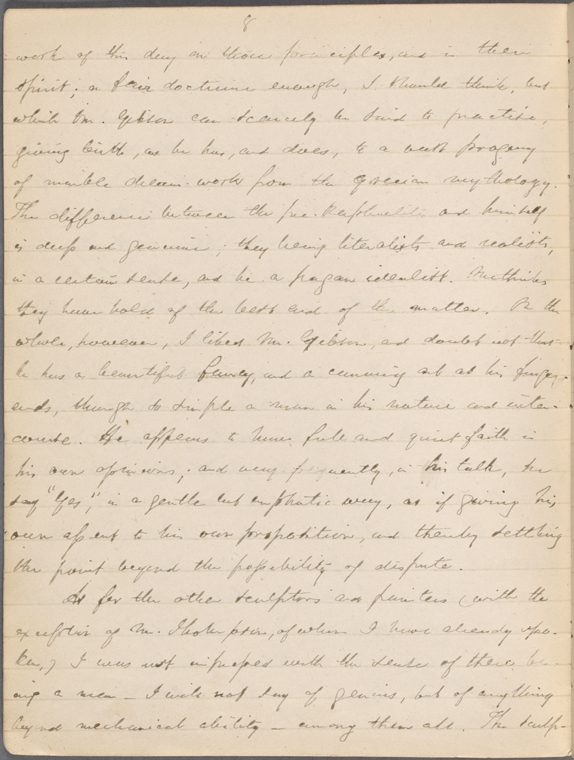 8
work of this day on those principles, and in their
spirit; a fair doctrine enough, I should think, but
which Mr. Gibson can scarcely be said to practise,
giving birth, as he has, and does, to a vast progeny
of marble dream-work from the Grecian mythology.
The difference between the pre-Raphaelites and himself
is deep and genuine; they being literalists and realists,
in a certain sense, and he a pagan idealist. Methinks
they have hold of the best end of the matter. On the
whole, however, I liked Mr. Gibson, and doubt not that
he has a beautiful fancy, and a cunning art at his finger-
ends, though so simple a man in his nature and inter-
course. He appears to have full and quiet faith in
his own opinions; and very frequently, in his talk, he
say "Yes", in a gentle but emphatic way, as if giving his
own assent to his own proposition, and thereby settling
the point beyond the possibility of dispute.
As for the other sculptors and painters (with the
exception of Mr. Thompson, of whom I have already spo-
ken,) I was not impressed with the sense of there be-
ing a man — I will not say of genius, but of anything
beyond mechanical ability — among them all. The sculp-